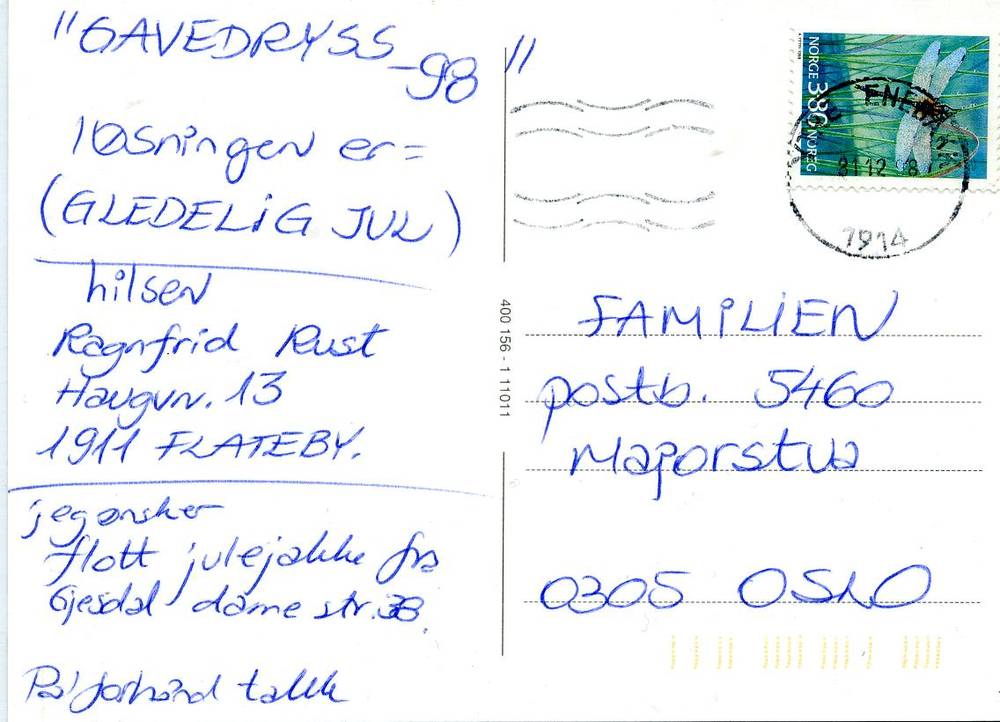 "GAVEDRYSS -98"
løsningen er =
(GLEDELiG JUL)
hilsen
Ragnfrid Rust
Haugvn. 13
1911 FLATEBY.
jeg ønsker
flott julejakke fra
Gjesdal dame str. 38.
På forhånd takk
NORGE 380 NOREG
31.12.98
1914
400 156 - 1 11011
FAMiLiEN
postb. 5460
Majorstua
0305 OSLO